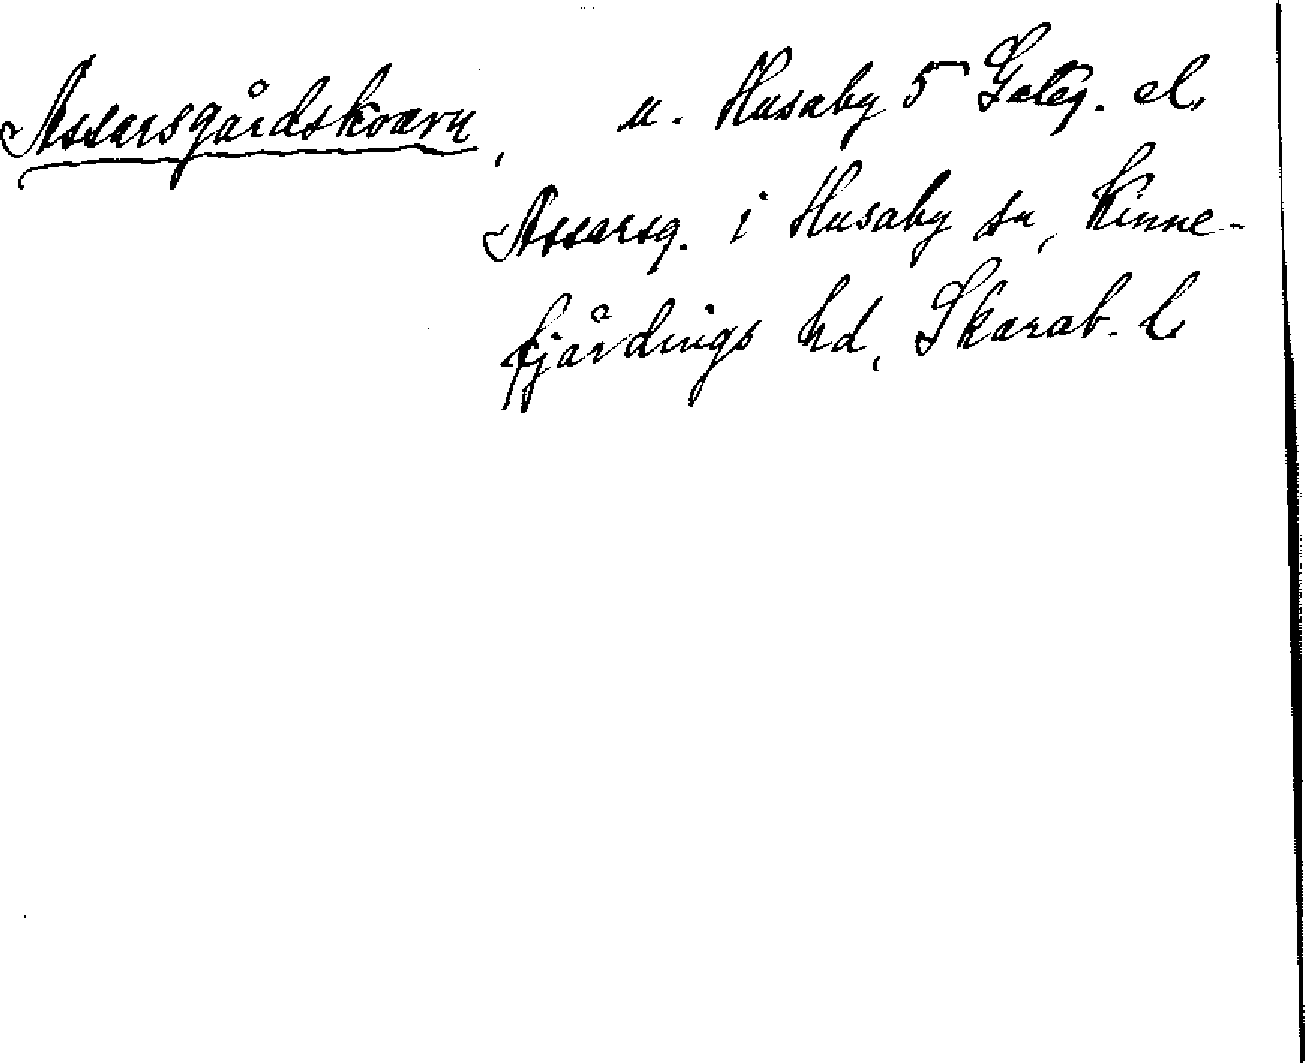 Assarsgårdskvarn, u. Husaby 5 Gateg. el.
Assarsg. i Husaby sn, Kinne-
fjärdings hd, Skarab. l.